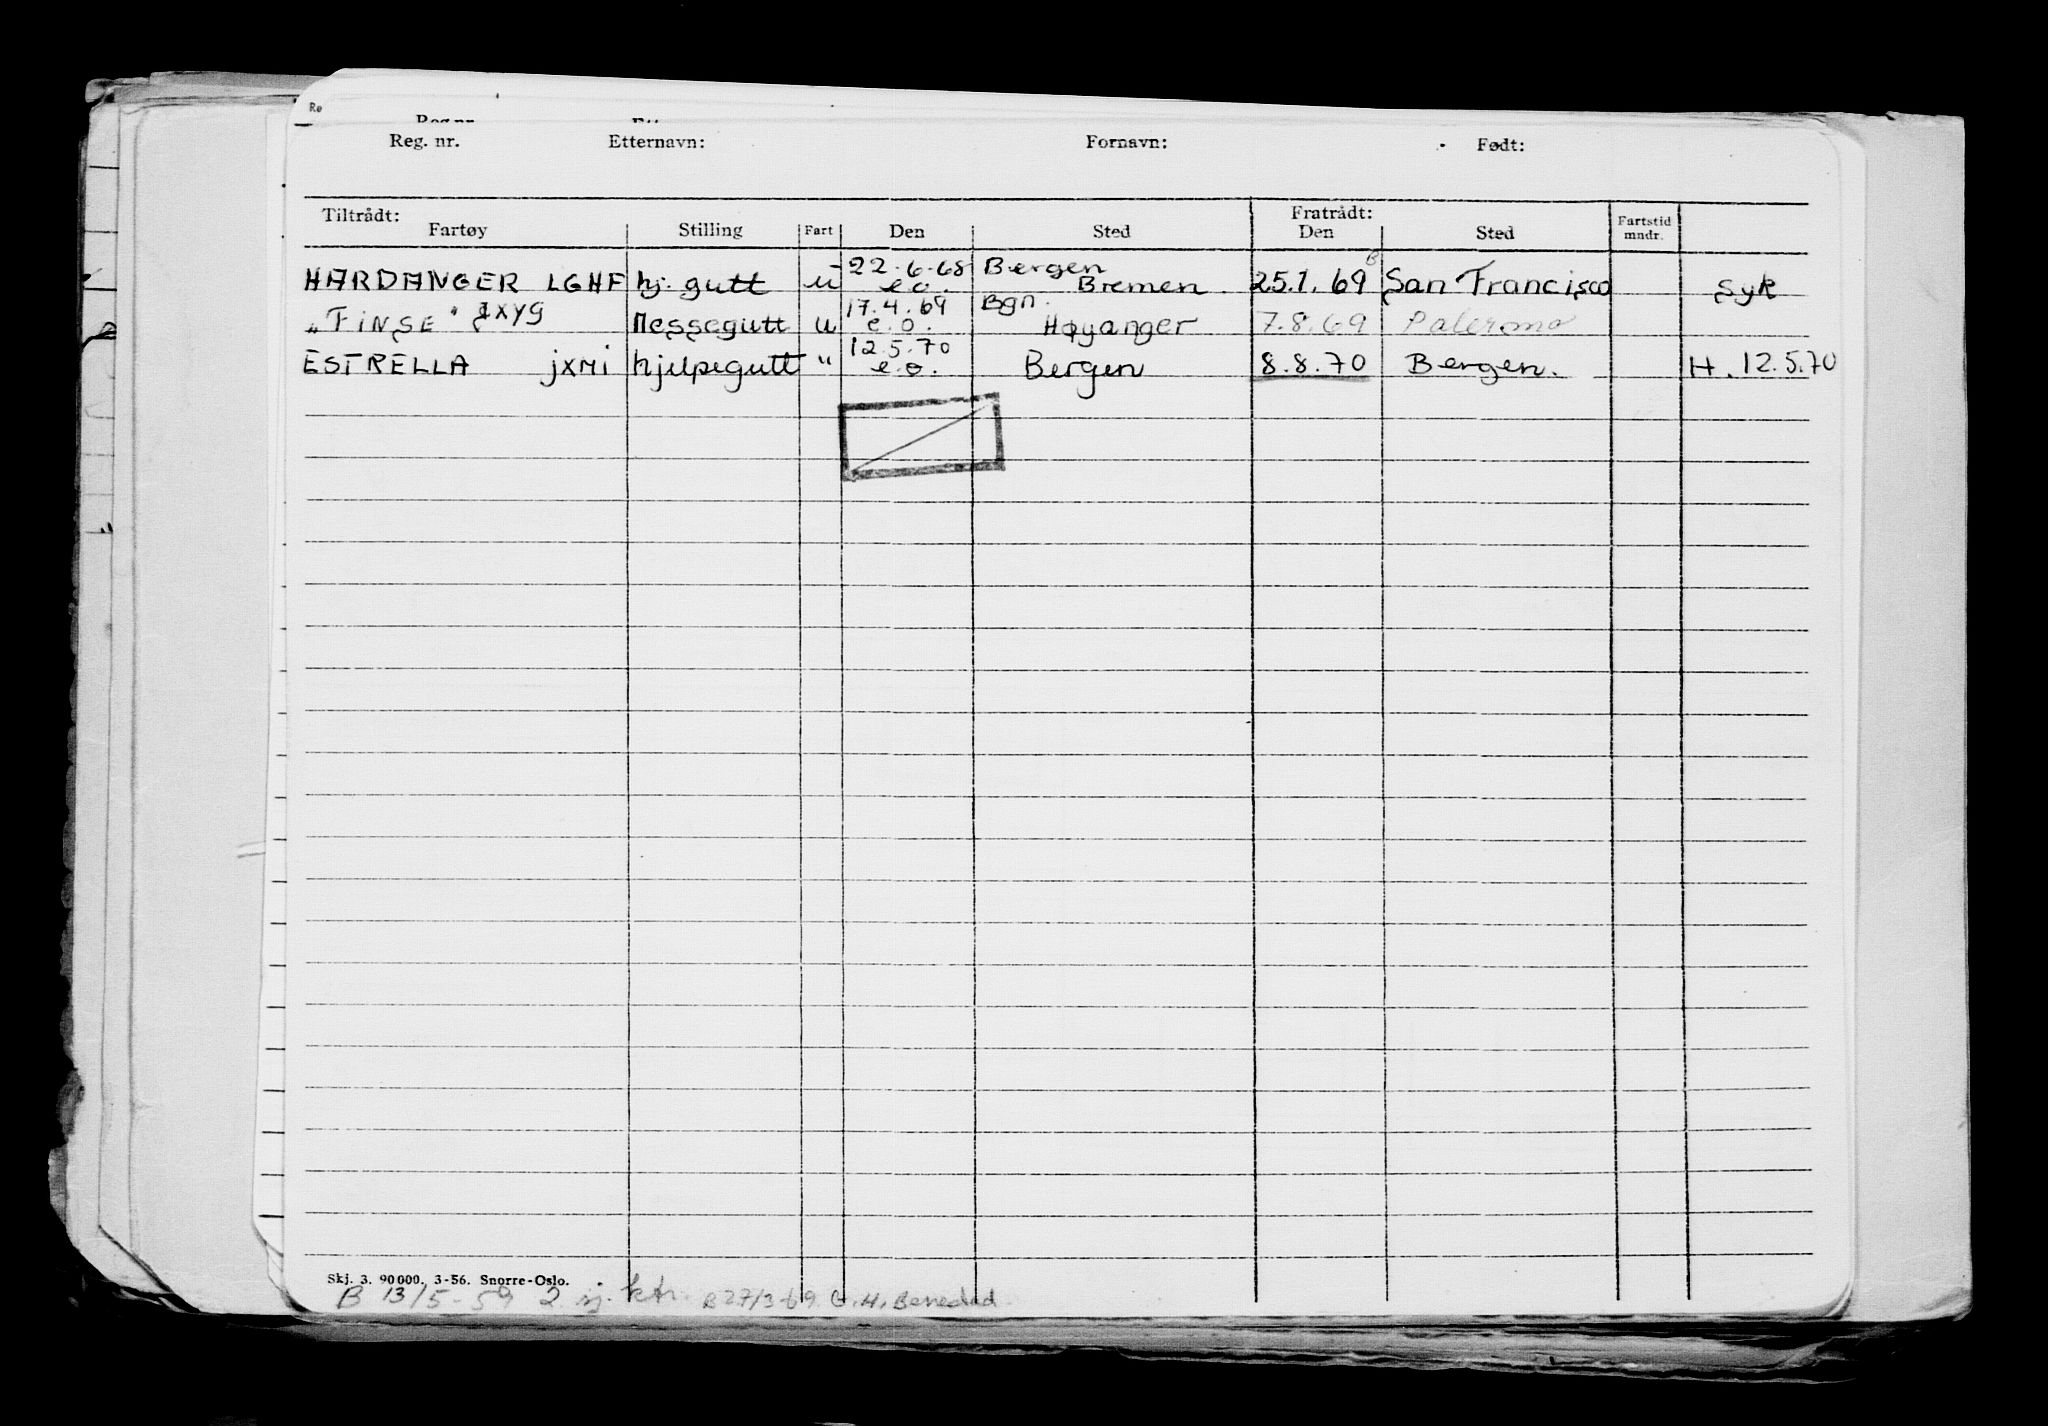 Re
Reg. nr. Etternavn: Fornavn: Født:
Tiltrådt: Fratrådt:
Fartøy Stilling Fart Den Sted Den Sted Fartstid mndr.
HARDANGER LGHF hj. gutt u 22.6.68 e.o. Bergen Bremen 25.1.69 B San Francisco syk
"FINSE" JXYG Messegutt u 17.4.69 e.o. Bgn. Høyanger 7.8.69 Palermo
ESTRELLA JXMI hjelpegutt " 12.5.70 e.o. Bergen 8.8.70 Bergen. H. 12.5.70
Skj. 3. 90 000. 3-56. Snorre-Oslo.
B 13/5-59 2 sj. ktr. B 27/3-69 G.H.